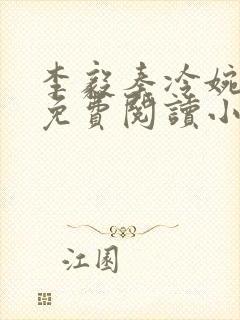 李毅奉冷婉
免費閱讀小
江園